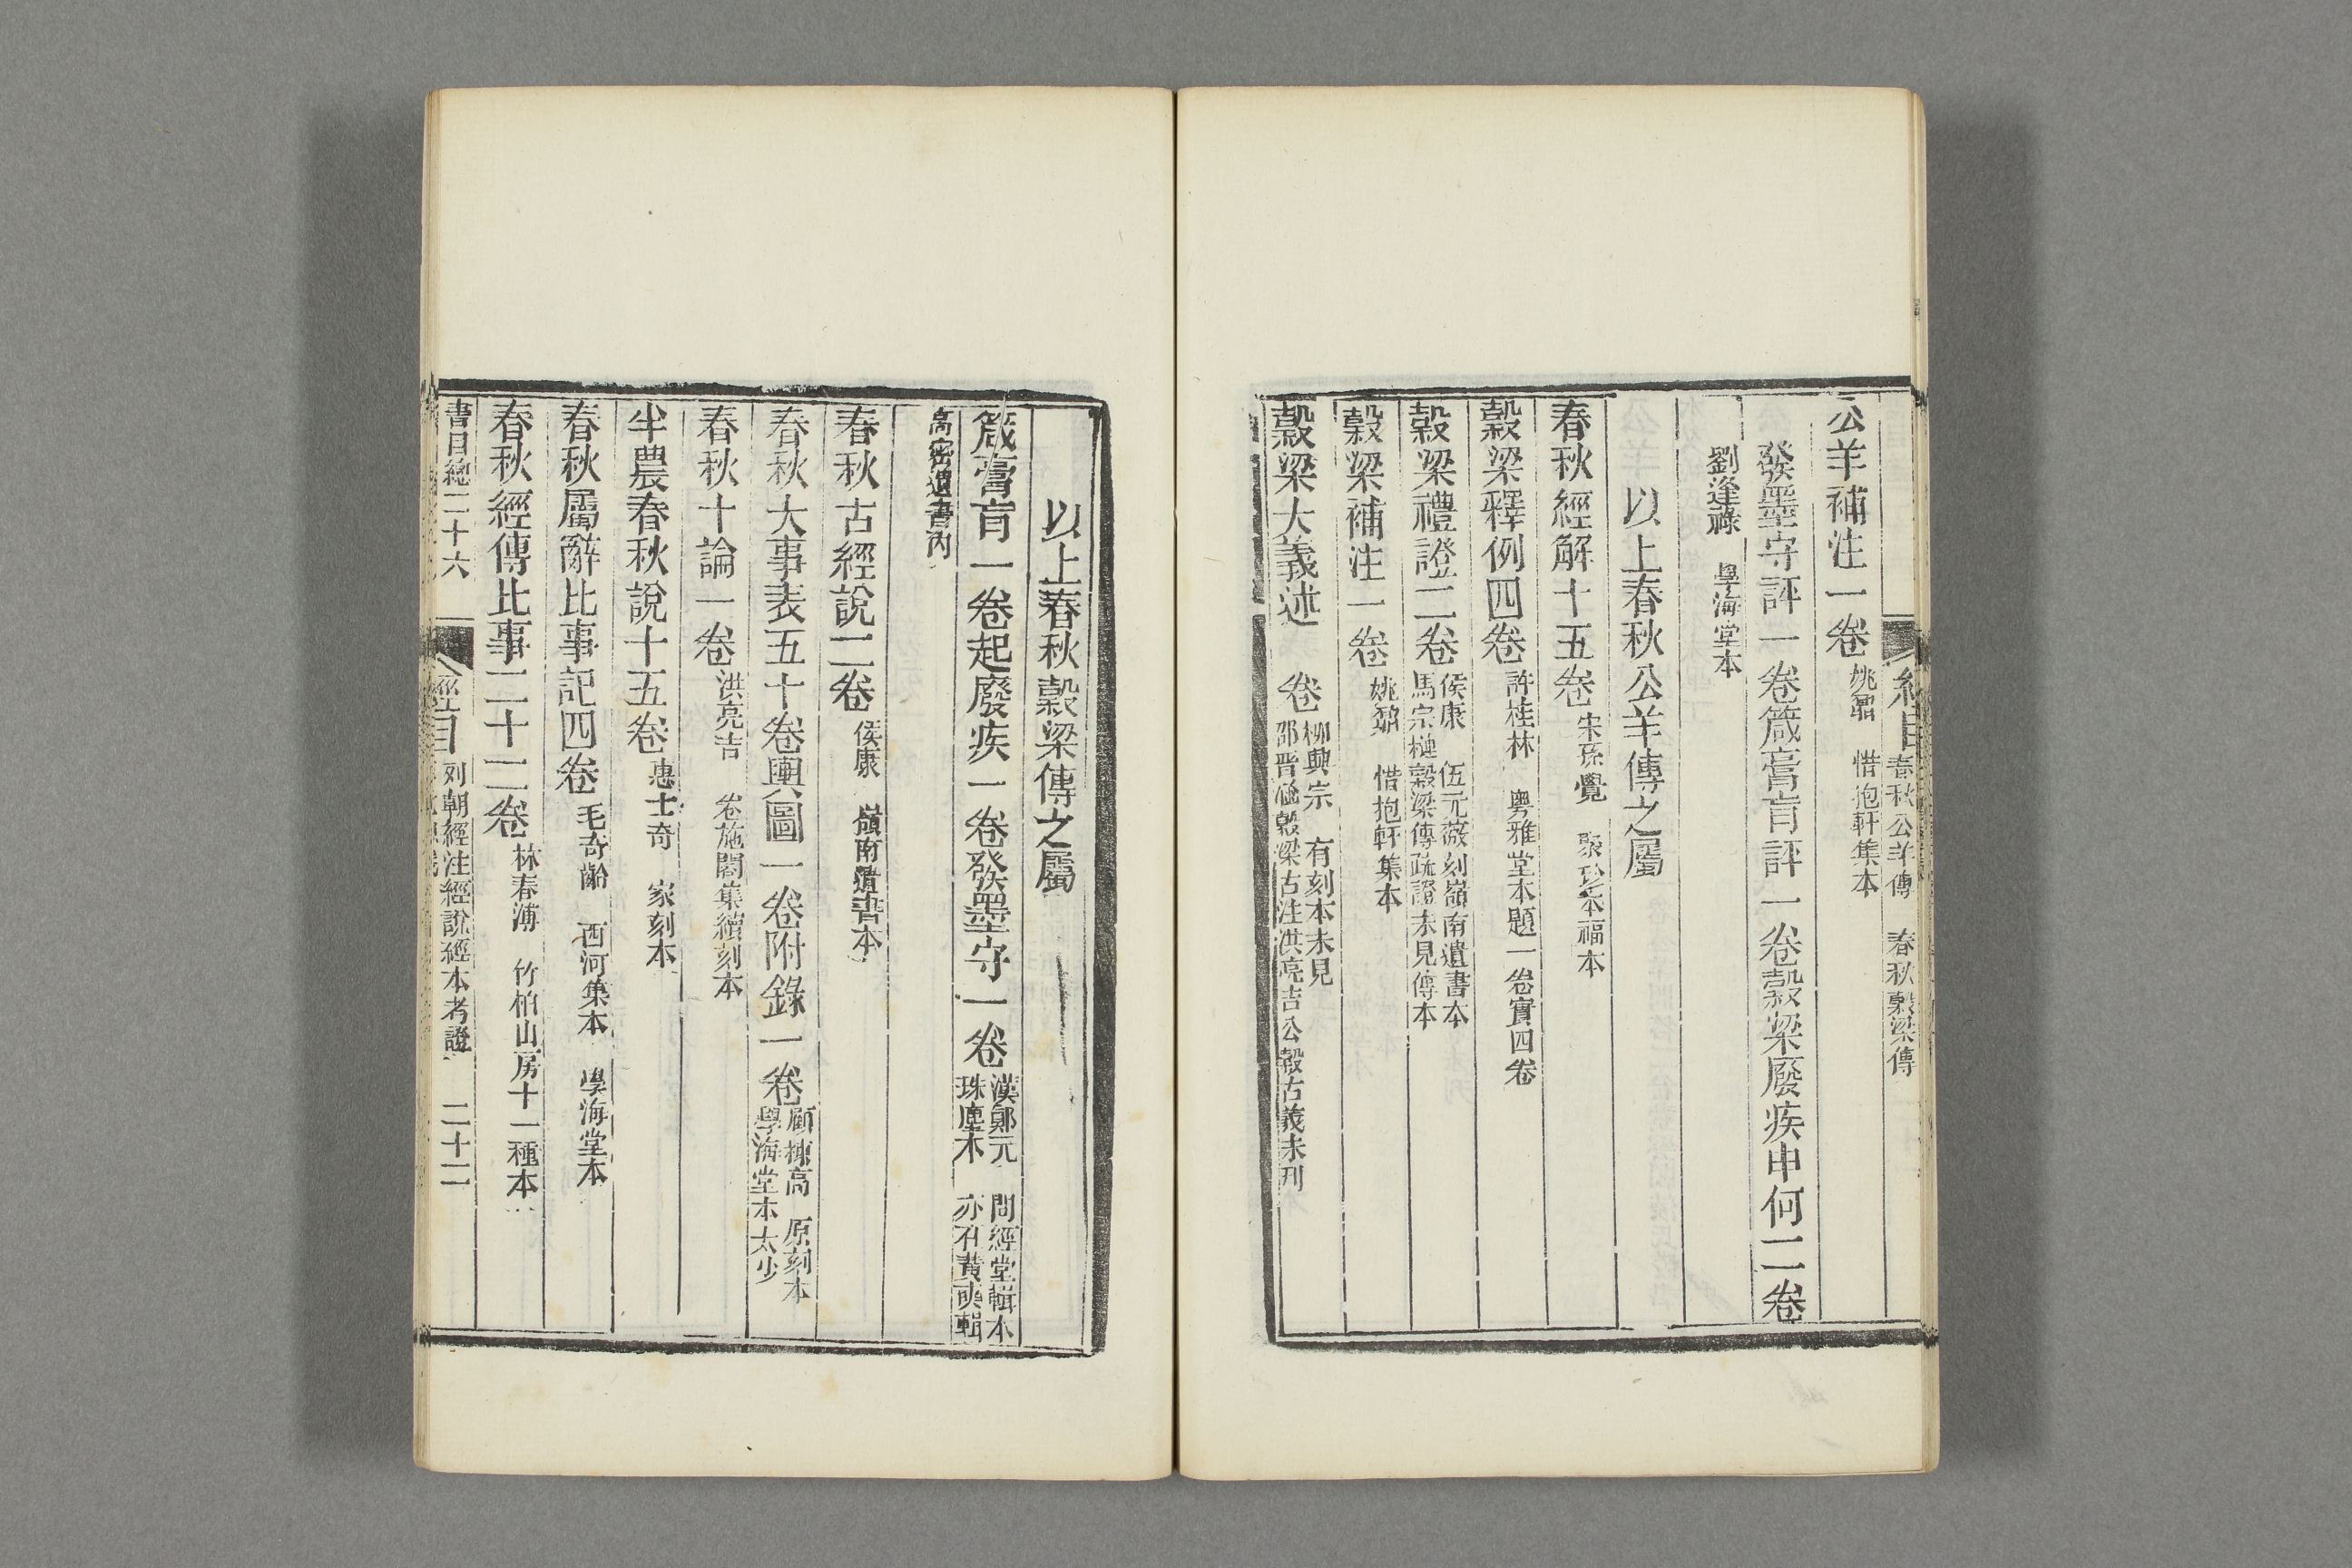 經目 春秋公羊傳 春秋穀梁傳
公羊補注一卷 姚鼐 惜抱軒集本
發墨守評一卷箴膏肓評一卷穀梁廢疾申何二卷
劉逢祿 學海堂本
以上春秋公羊傳之屬
春秋經解十五卷 宋孫覺 聚珍本福本
穀梁釋例四卷 許桂林 粵雅堂本題一卷實四卷
穀梁禮證二卷 侯康 伍元薇刻嶺南遺書本
馬宗槤穀梁傳疏證未見傳本
穀梁補注一卷 姚鼐 惜抱軒集本
穀梁大義述 卷 柳興宗 有刻本未見
邵晉涵穀梁古注洪亮吉公穀古義未刊
以上春秋穀梁傳之屬
箴膏肓一卷起廢疾一卷發墨守一卷 漢鄭元 問經堂輯本
珠塵本 亦在黃奭輯
高密遺書內
春秋古經說二卷 侯康 嶺南遺書本
春秋大事表五十卷輿圖一卷附錄一卷 顧棟高 原刻本
學海堂本太少
春秋十論一卷 洪亮吉 卷施閣集續刻本
半農春秋說十五卷 惠士奇 家刻本
春秋屬辭比事記四卷 毛奇齡 西河集本 學海堂本
春秋經傳比事二十二卷 林春溥 竹柏山房十一種本
書目總二十六 經目 列朝經注經說經本考證 二十二